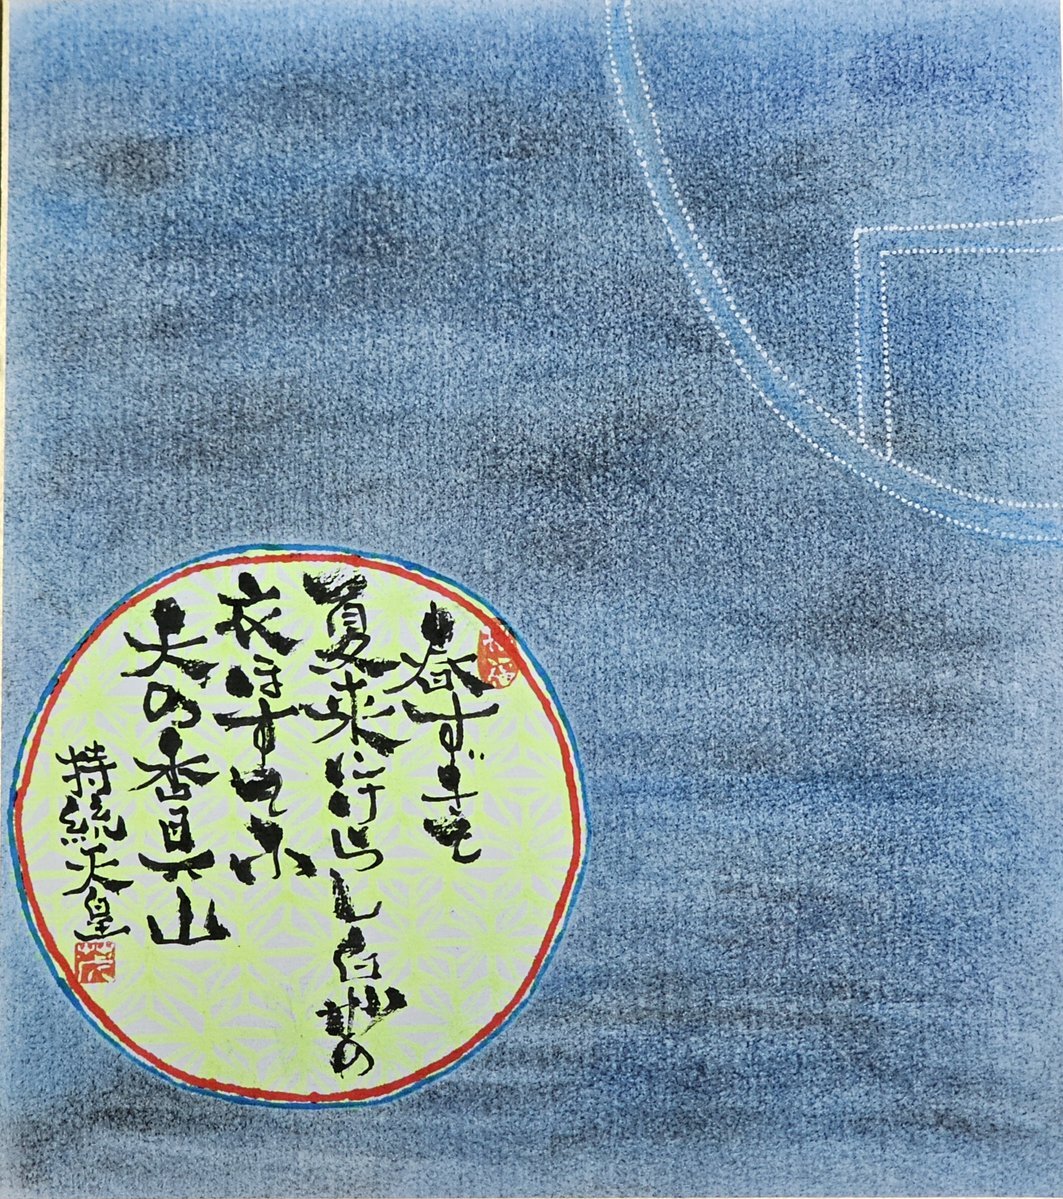 春すぎて
夏来にけらし白妙の
衣ほすてふ
天の香具山
持統天皇